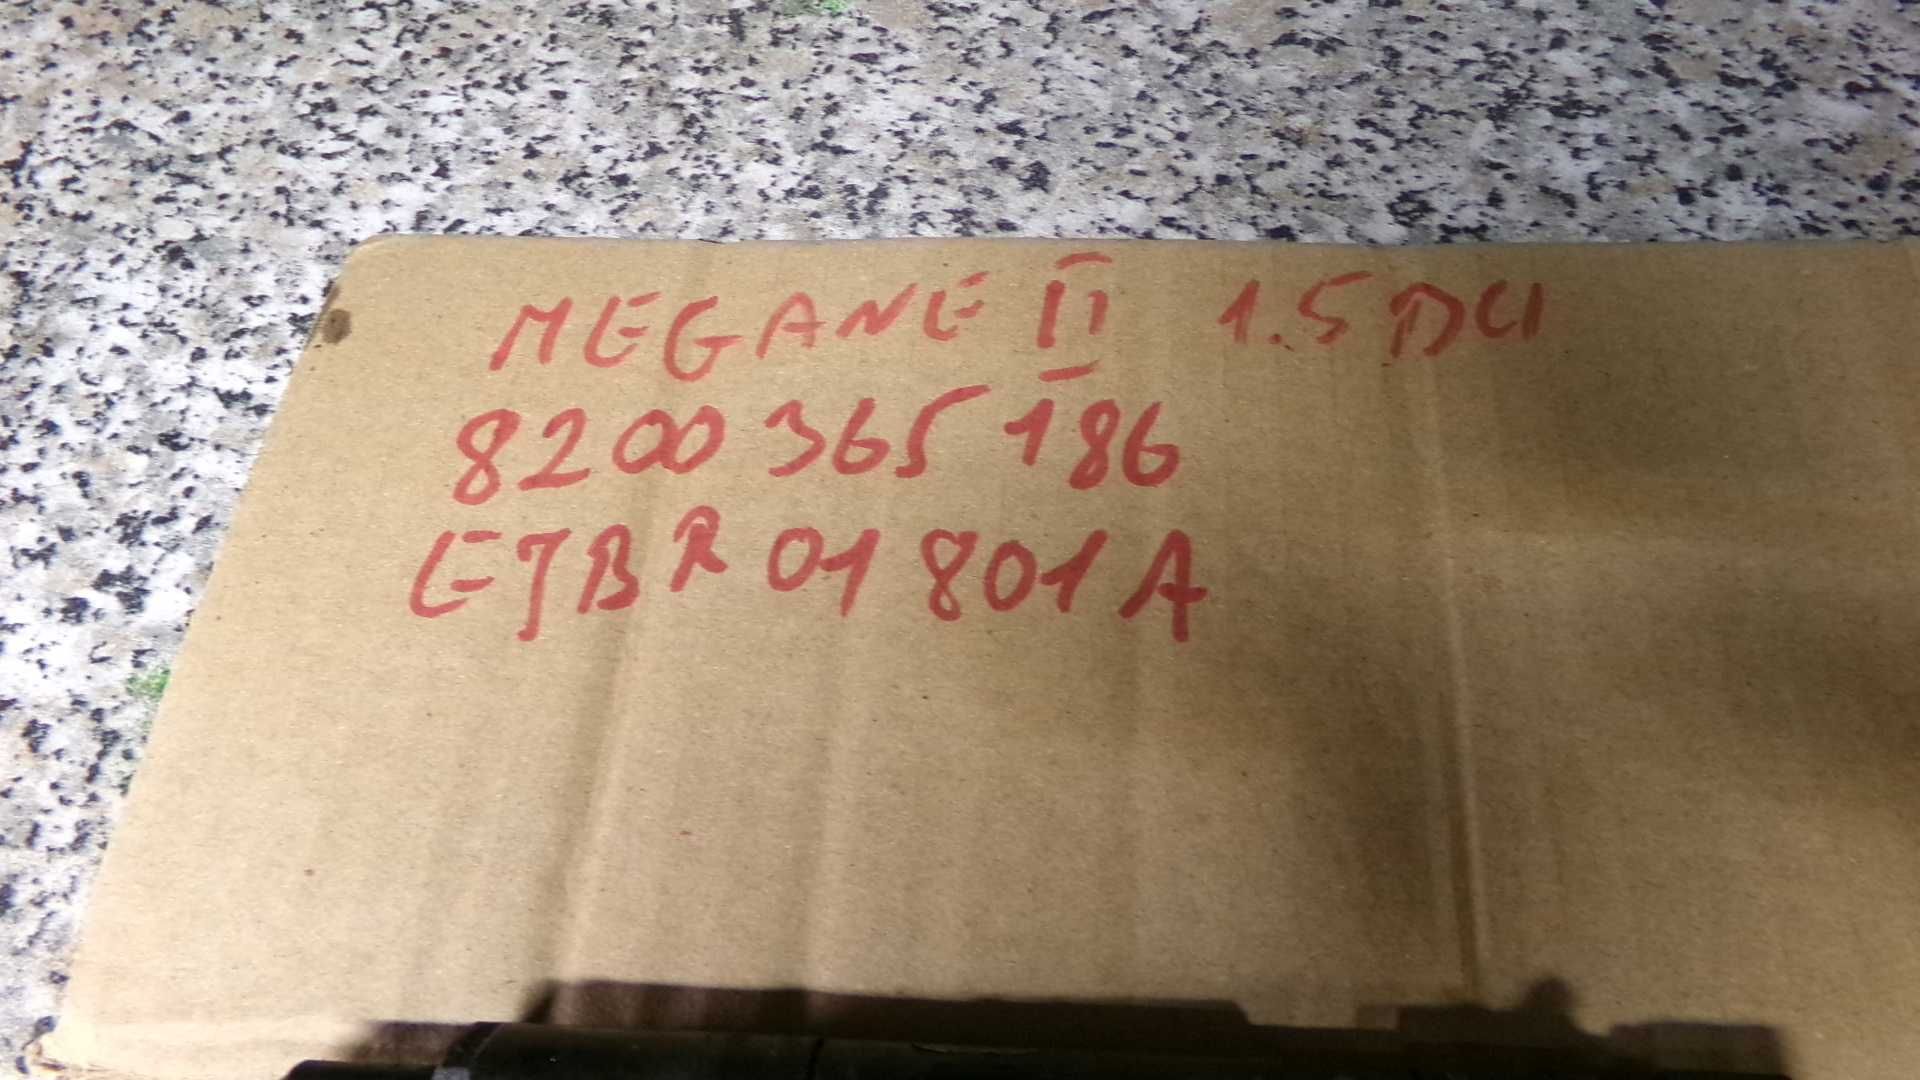 MEGANE II 1.5 DCI
8200 365 186
EJBR 01 801 A